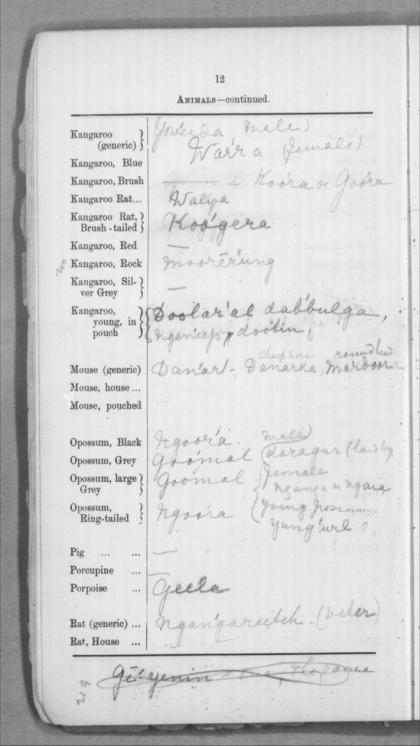 12
ANIMALS—continued.
Kangaroo (generic) } Yow'erda (male)
Warr'a (female)
Kangaroo, Blue
Kangaroo, Brush Koo'ra or Goo'ra
Kangaroo Rat... Walya
Kangaroo Rat, Brush-tailed } Koo'gera
Kangaroo, Red —
Kangaroo, Rock moorer'ung
Kangaroo, Silver Grey } —
Kangaroo, young, in pouch } Doolar'al dab'bulga,
doo'tin,
Mouse (generic) Dan'art- Danarda, mardoon
Sharp nose roundhead
Mouse, house...
Mouse, pouched
Opossum, Black Ngoor'a. male)
Opossum, Grey Goo'mal (daragur
Opossum, large Grey } Goo'mal female
nganga or
Opossum, Ring-tailed } Ngoora (young possum.
yung'url ?
Pig ... ... —
Porcupine ... —
Porpoise ... Geela
Rat (generic) ...
Rat, House ...
219